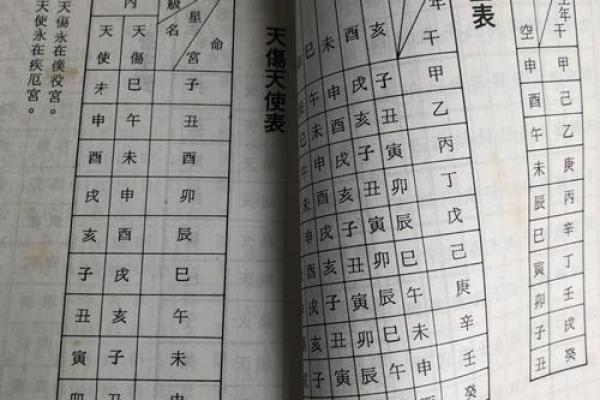 生年干
空
申 甲
酉 己
午 乙
未 庚
辰 丙
巳 辛
寅 丁
卯 壬
子 戌
丑 癸
表
年干
巳 未 酉 亥
午 申 戌 子 甲
未 酉 亥 丑 乙
申 戌 子 寅 丙
酉 亥 丑 卯 丁
戌 子 寅 辰 戊
亥 丑 卯 巳 己
子 寅 辰 午 庚
丑 卯 巳 未 辛
寅 辰 午 申 壬
癸
天傷天使表
級名 星 宮 命
天使 天傷
未 巳 子
申 午 丑
酉 未 寅
戌 申 卯
亥 酉 辰
子 戌 巳
丑 亥 午
寅 子 未
卯 丑 申
天傷永在僕役宮。
天使永在疾厄宮。